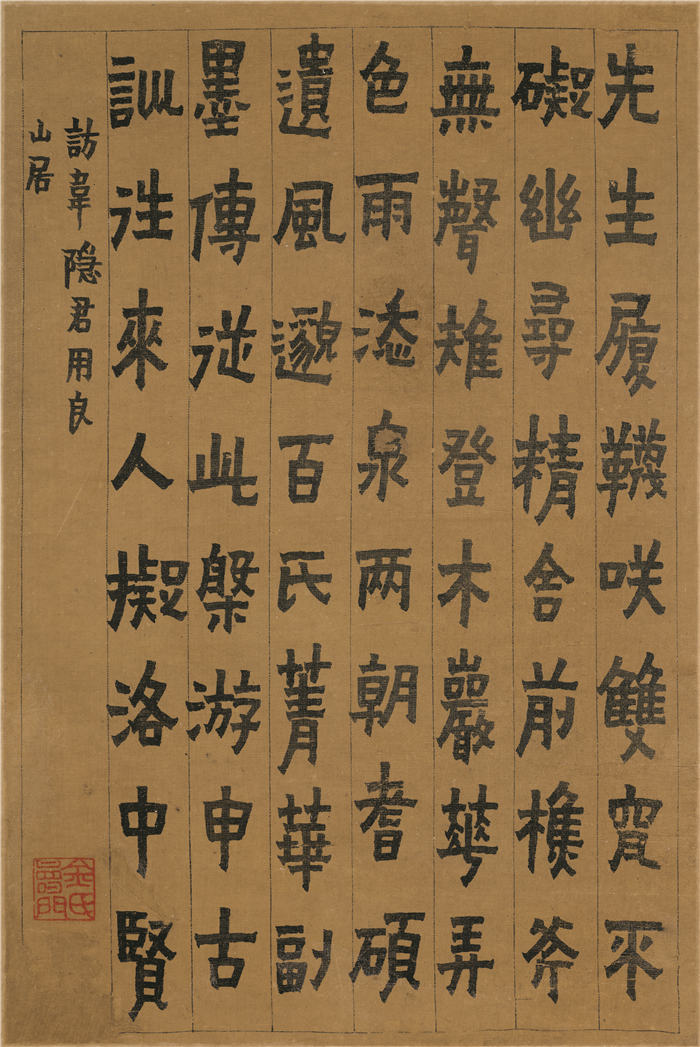 先生履韈咲雙穿不
礙幽尋精舍前樵斧
無聲雉登木巖華弄
色雨添泉两朝耆碩
遺風邈百氏菁華副
墨傳從此槃游申古
訓往來人擬洛中賢
訪韋隐君用良
山居
金氏壽門